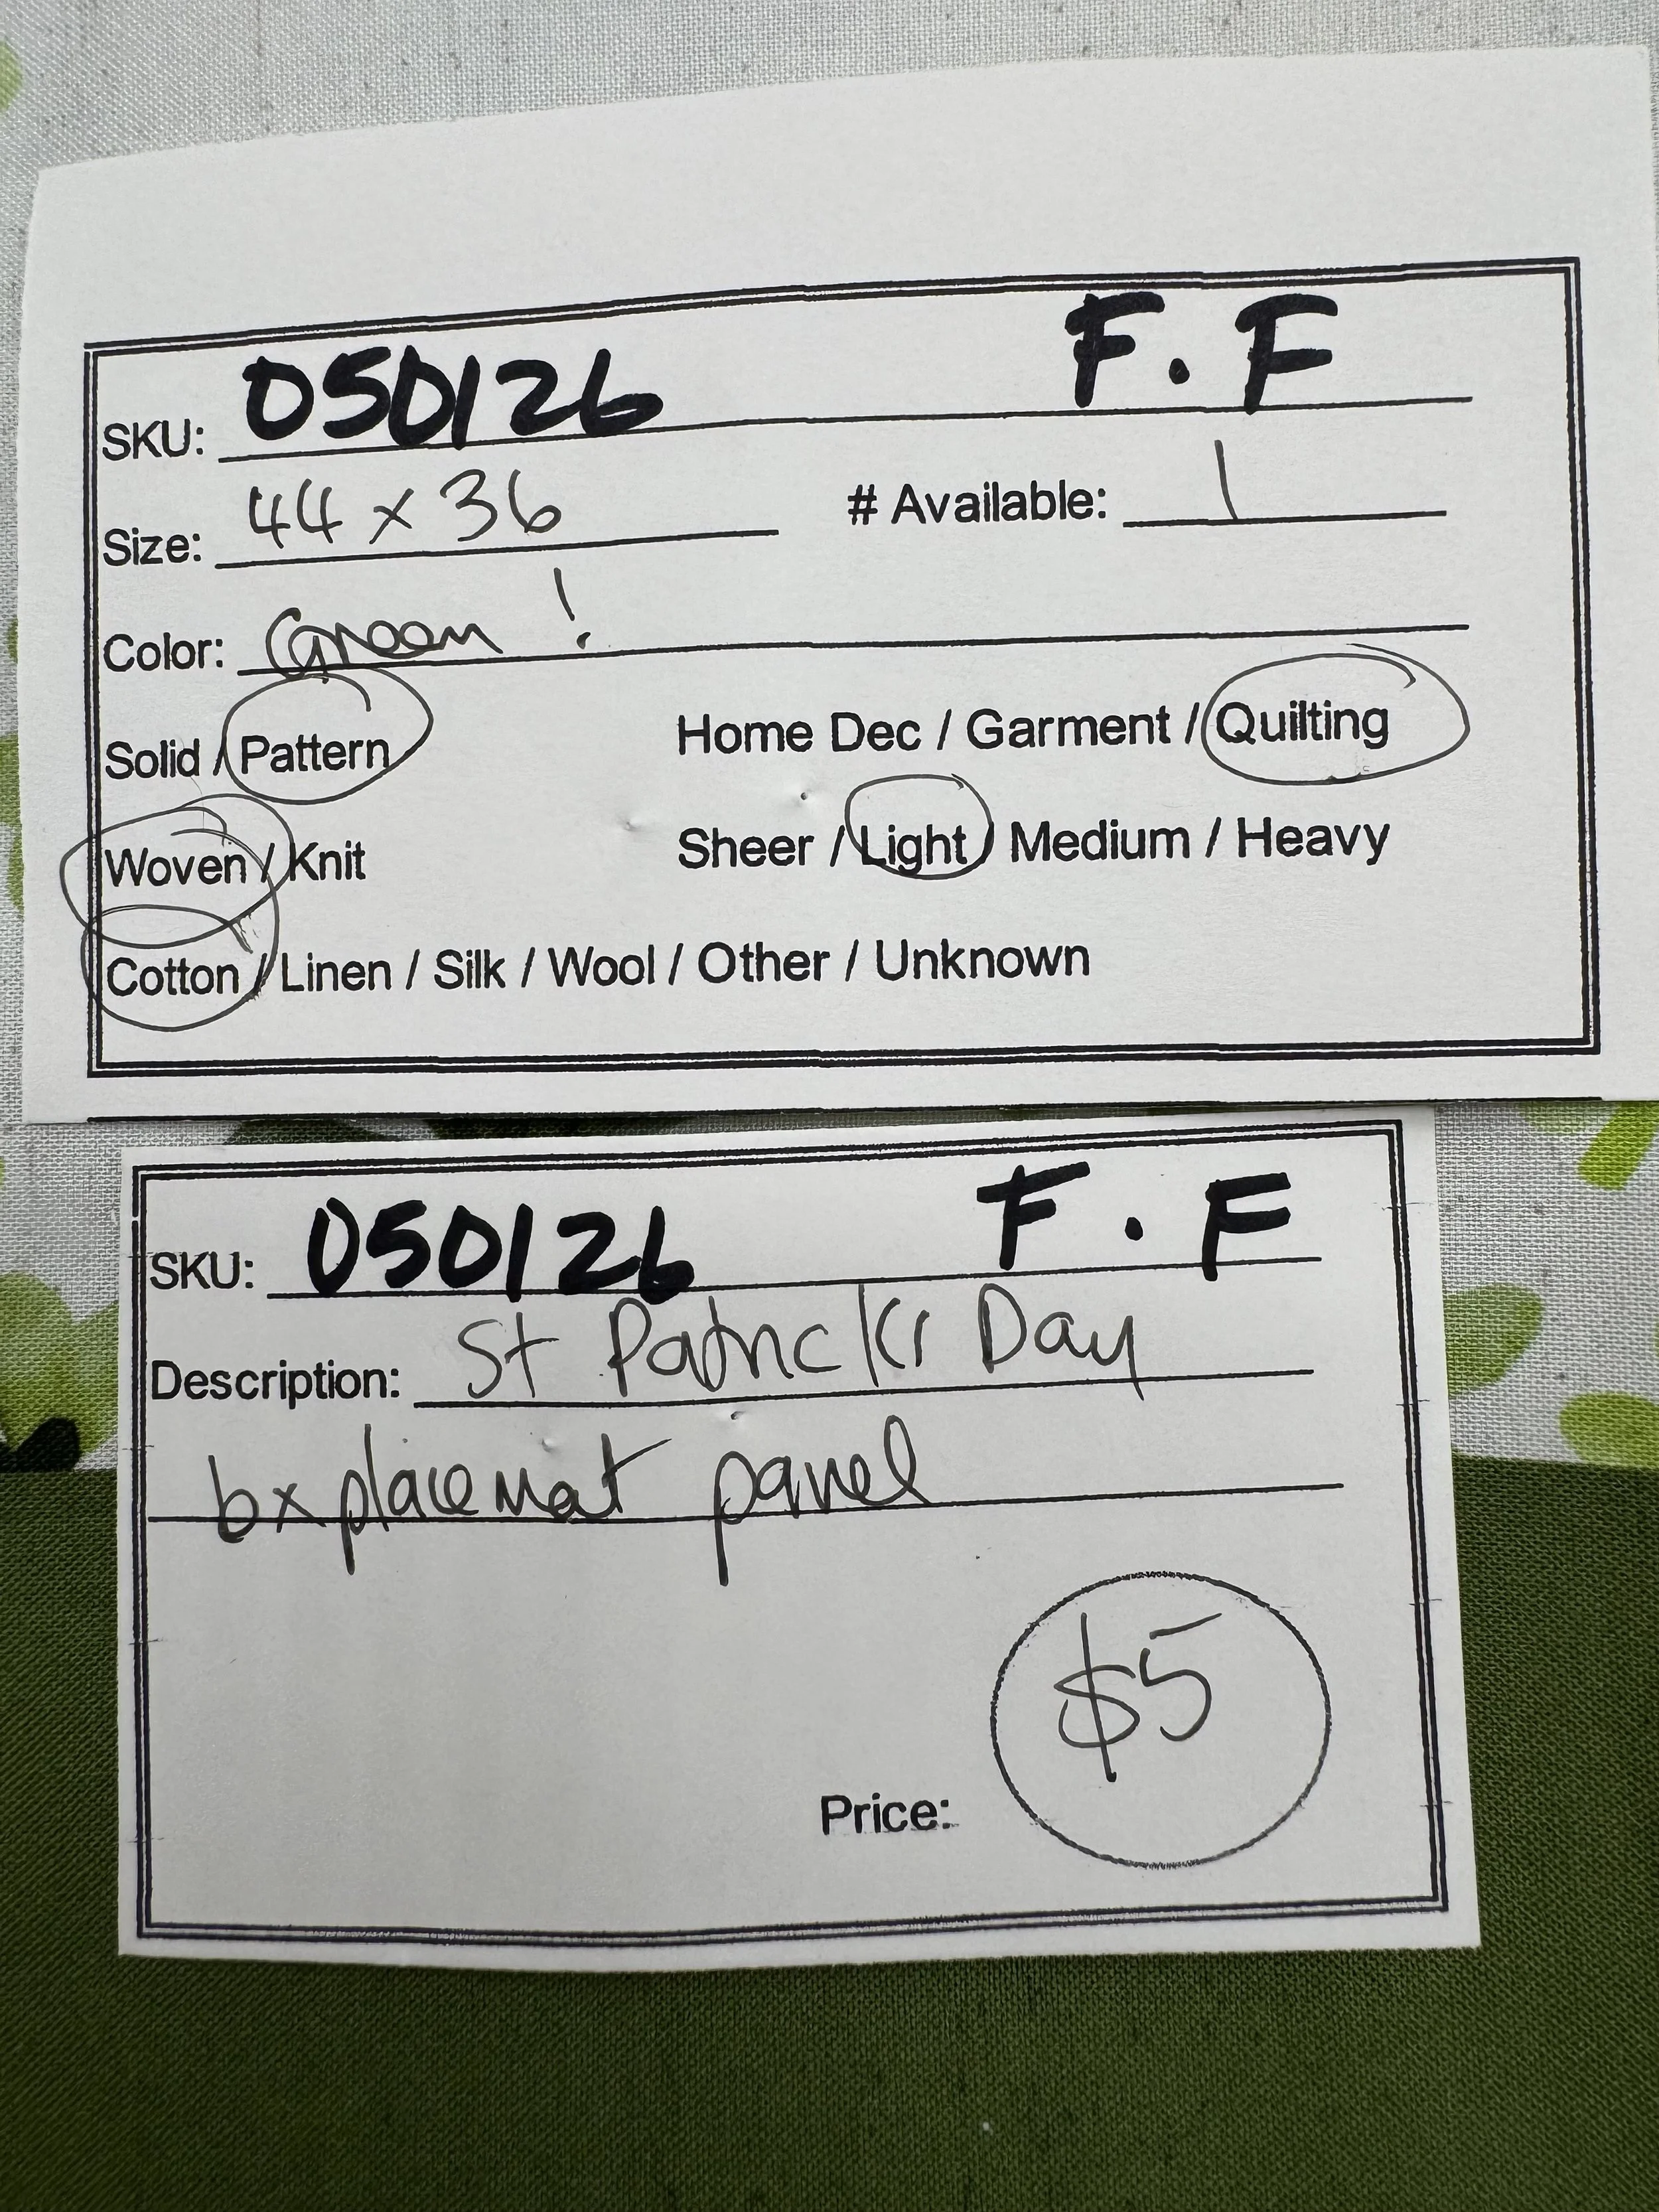 SKU: 050126 F.F
Size: 44 x 36 # Available: 1
Color: Green!
Solid / Pattern Home Dec / Garment / Quilting
Woven / Knit Sheer / Light / Medium / Heavy
Cotton / Linen / Silk / Wool / Other / Unknown
SKU: 050126 F.F
Description: St Patricks Day
6x placemat panel
$5
Price: